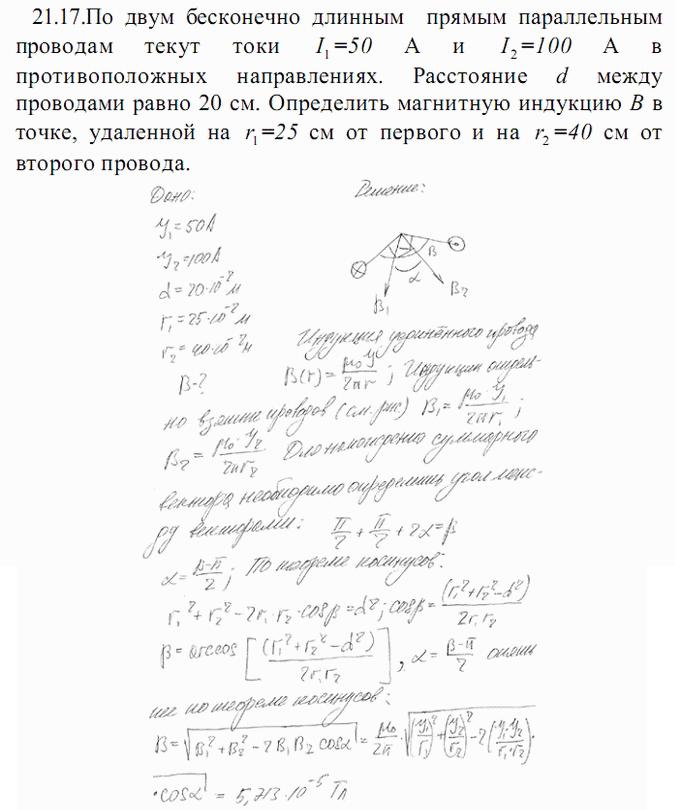 21.17.По двум бесконечно длинным прямым параллельным
проводам текут токи I₁=50 А и I₂=100 А в
противоположных направлениях. Расстояние d между
проводами равно 20 см. Определить магнитную индукцию B в
точке, удаленной на r₁=25 см от первого и на r₂=40 см от
второго провода.
Дано: Решение:
У₁=50А
У₂=100А
d=20·10⁻²м
r₁=25·10⁻²м
r₂=40·10⁻²м
B-?
β
α
B₁
B₂
Индукция уединённого провода
B(r)=μ₀У/2πr; Индукции отдель-
но взятых проводов (см. рис) B₁=μ₀·У₁/2πr₁;
B₂=μ₀·У₂/2πr₂ Для нахождения суммарного
вектора необходимо определить угол меж-
ду векторами: π/2+π/2+2α=β
α=β-π/2; По теореме косинусов:
r₁²+r₂²-2r₁r₂·cosβ=d²; cosβ=(r₁²+r₂²-d²)/2r₁r₂
β=arccos[(r₁²+r₂²-d²)/2r₁r₂], α=β-π/2
по теореме косинусов:
B=√(B₁²+B₂²-2B₁B₂cosα)=μ₀/2π·√((У₁/r₁)²+(У₂/r₂)²-2(У₁·У₂/r₁·r₂)·
·cosα)=5,713·10⁻⁵ Тл